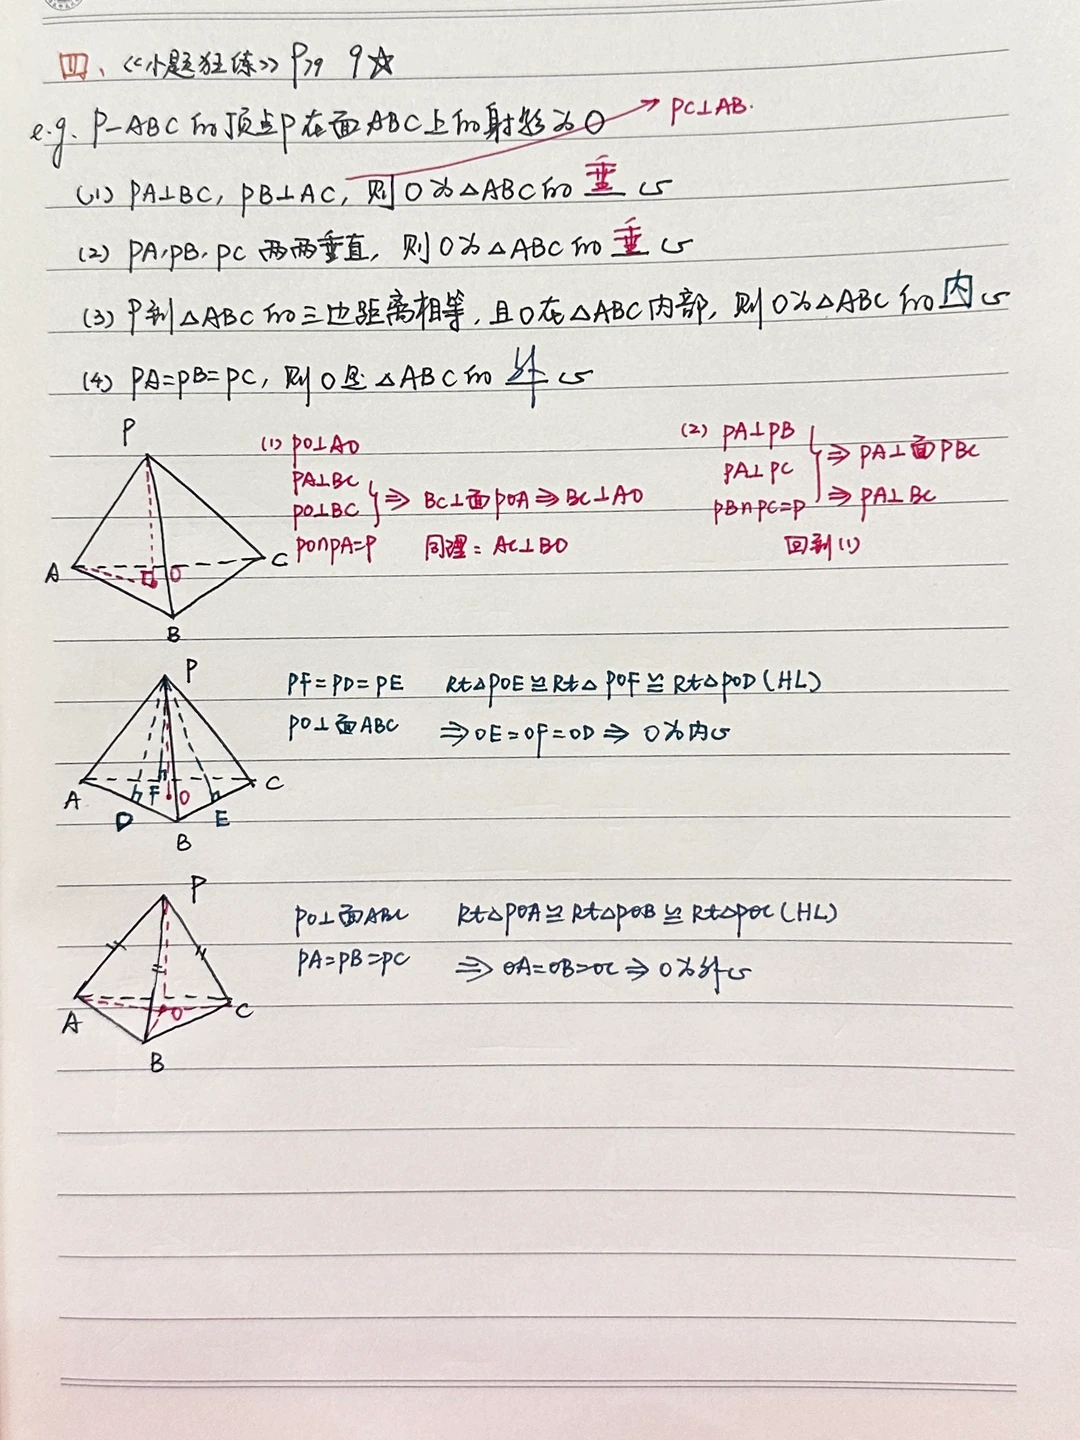 四、《小题狂练》P79 9☆
e.g. P-ABC的顶点P在面ABC上的射影为O
PC⊥AB.
(1) PA⊥BC, PB⊥AC, 则O为△ABC的 垂 心
(2) PA,PB,PC 两两垂直, 则O为△ABC的 垂 心
(3) P到△ABC的三边距离相等, 且O在△ABC内部, 则O为△ABC的 内 心
(4) PA=PB=PC, 则O是△ABC的 外 心
P
A
B
C
O
(1) PO⊥AO
PA⊥BC
PO⊥BC
PO∩PA=P
⇒ BC⊥面POA ⇒ BC⊥AO
同理: AC⊥BO
(2) PA⊥PB
PA⊥PC
PB∩PC=P
⇒ PA⊥面PBC
⇒ PA⊥BC
回到(1)
P
A
F
O
C
D
E
B
PF=PD=PE Rt△POE≌Rt△POF≌Rt△POD(HL)
PO⊥面ABC ⇒OE=OF=OD⇒ O为内心
P
A
O
C
B
PO⊥面ABC Rt△POA≌Rt△POB≌Rt△POC(HL)
PA=PB=PC ⇒OA=OB=OC⇒O为外心